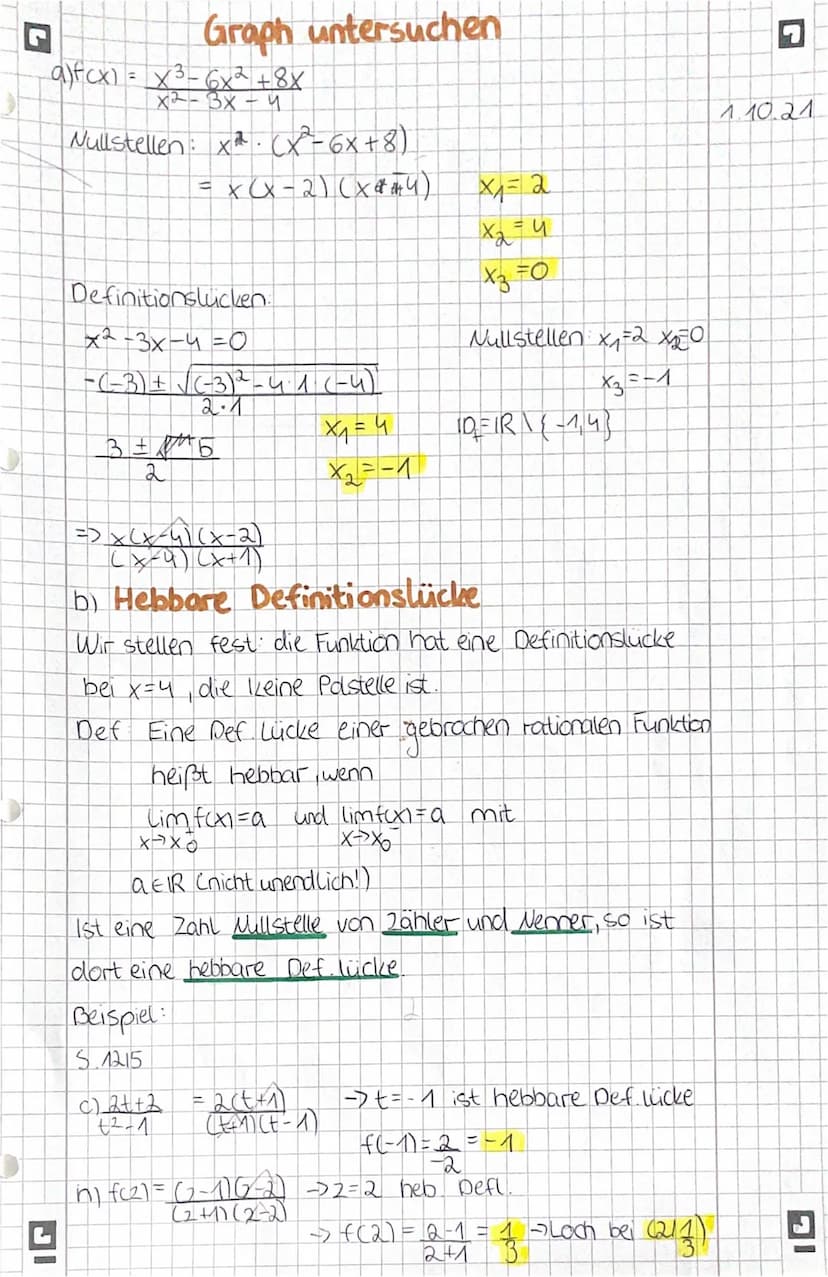 Graph untersuchen
a) f(x) = x³ - 6x² + 8x / x² - 3x - 4
1.10.21
Nullstellen: x · (x² - 6x + 8)
= x(x - 2) (x - 4) x₁ = 2
x₂ = 4
x₃ = 0
Definitionslücken:
x² - 3x - 4 = 0 Nullstellen: x₁=2 x₂=0
-(-3) ± √(-3)² - 4·1·(-4) / 2·1 x₃ = -1
x₁ = 4 ID_f = IR \ {-1,4}
3 ± 5 / 2 x₂ = -1
=> x(x-4)(x-2) / (x-4)(x+1)
b) Hebbare Definitionslücke
Wir stellen fest: die Funktion hat eine Definitionslücke
bei x=4, die keine Polstelle ist.
Def: Eine Def. Lücke einer gebrochen rationalen Funktion
heißt hebbar, wenn
lim f(x) = a und lim f(x) = a mit
x→x₀⁺ x→x₀⁻
a ∈ IR (nicht unendlich!)
Ist eine Zahl Nullstelle von Zähler und Nenner, so ist
dort eine hebbare Def. lücke.
Beispiel:
S. 12 15
c) 2t+2 / t²-1 = 2(t+1) / (t+1)(t-1) → t = -1 ist hebbare Def. lücke
f(-1) = 2 / -2 = -1
h) f(z) = (z-1)(z-2) / (z+1)(z-2) → z=2 heb. Defl.
→ f(2) = 2-1 / 2+1 = 1/3 → Loch bei (2|1/3)